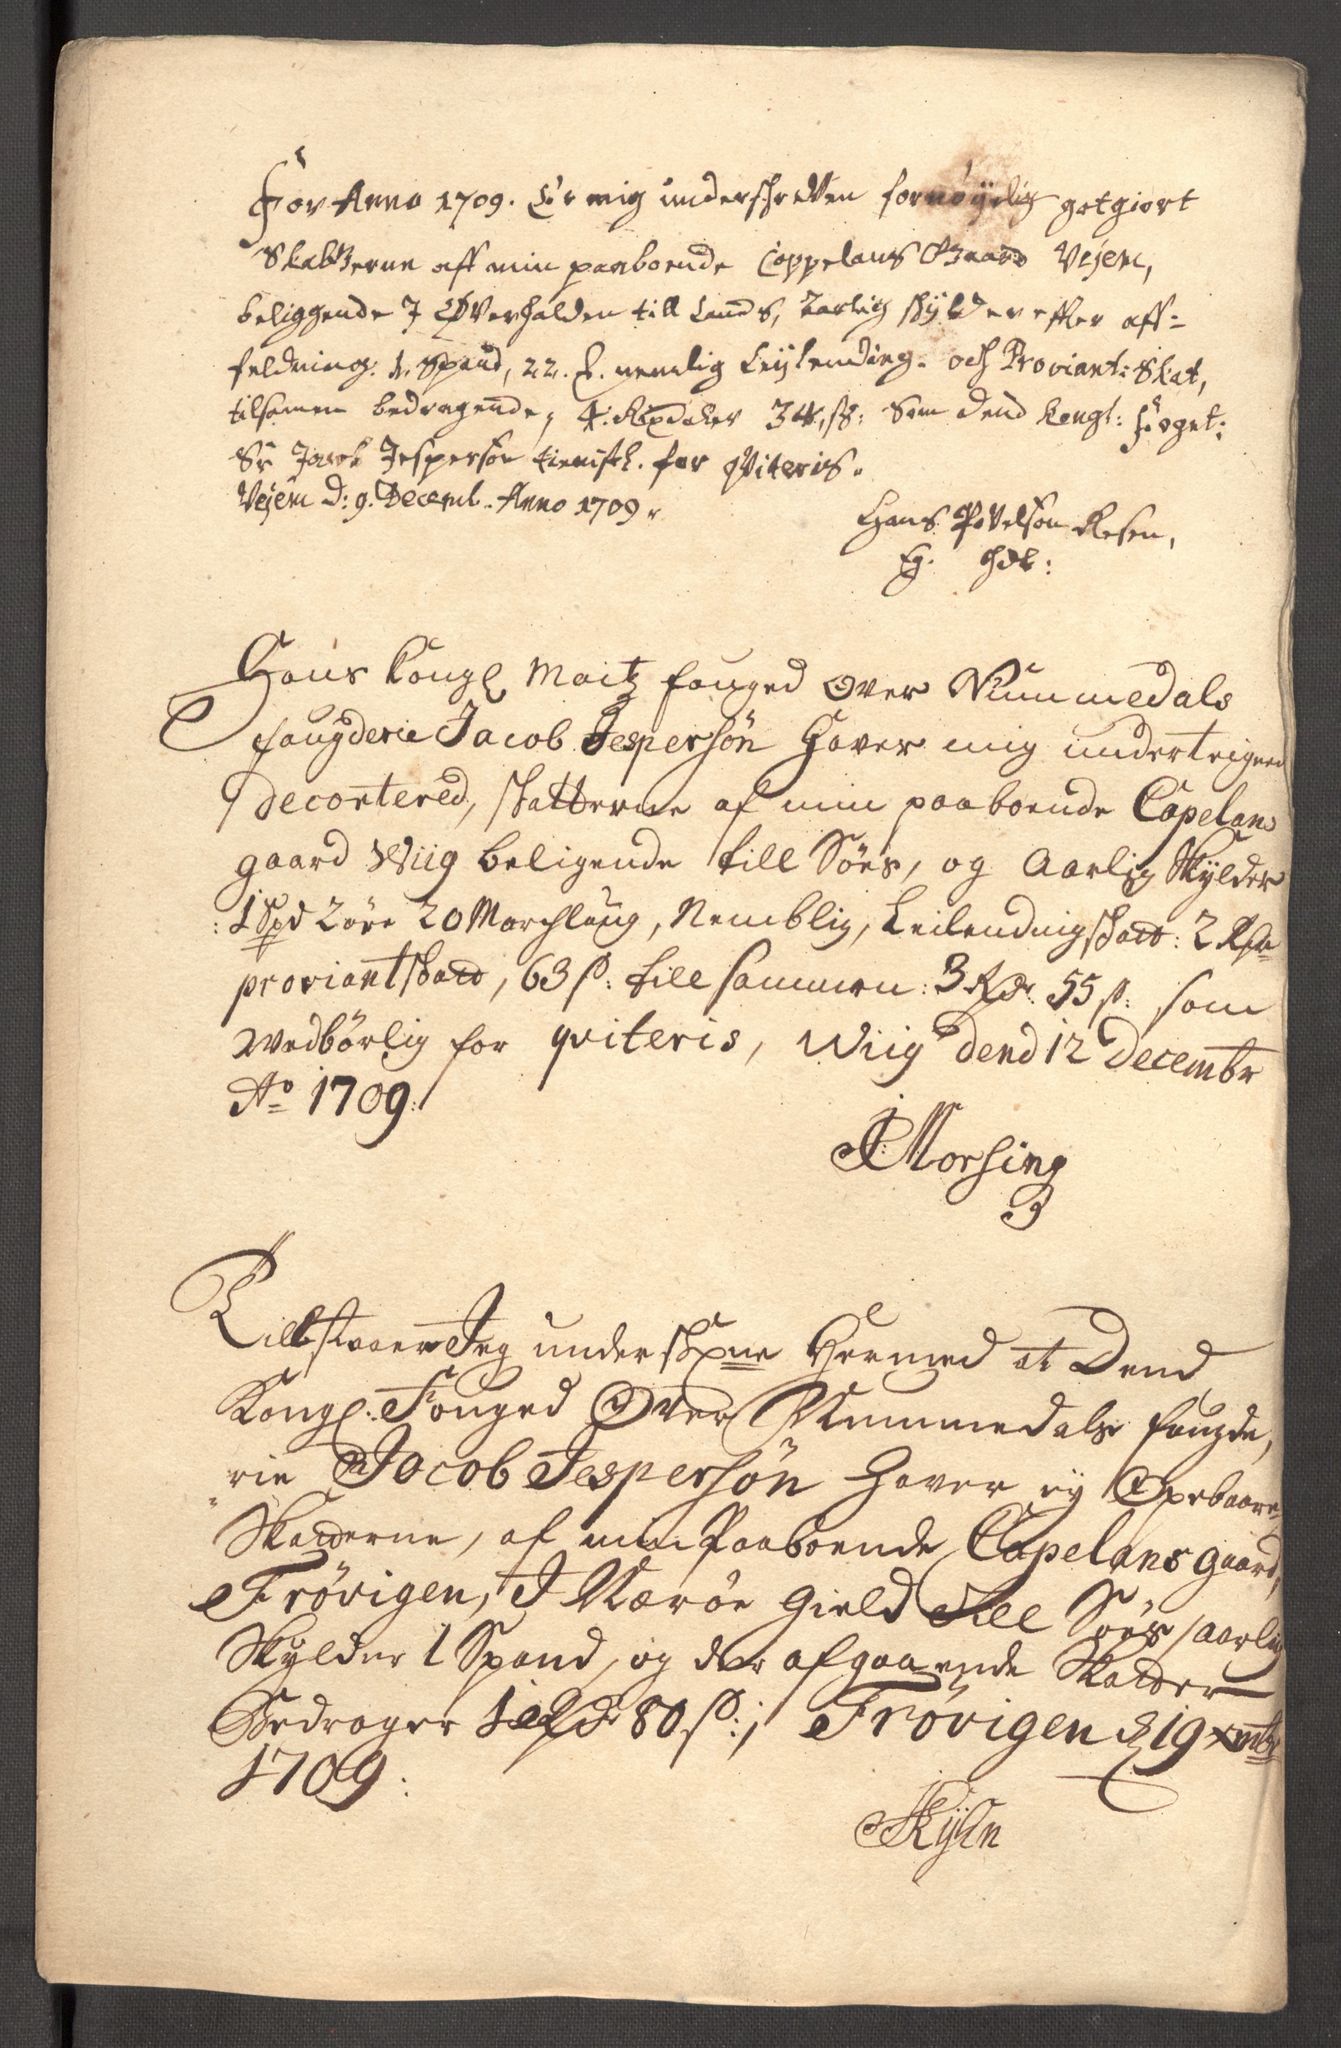 For Anno 1709. Er mig underschreffven fornøyelig gotgiort
Skatterne aff min paaboende Cappelans Gaard Vejem,
beliggende J Øfverhalden till Lands, aarlig schylder effter aff-
feldning: 1. Spand, 22. nemlig Leylending- och Proviant: Skat,
tilsamen bedragende, 4. Rixdaler 34. ß: som dend Kongl: foget:
Sr Jacob Jespersøn tienistl. for qviteris.
Vejem D: 9. Decemb. Anno 1709.
Hans Povelsøn Resen,
Hans Kongl Maitz fouged Over Nummedals
fougderie Jacob Jespersøn Haver mig underteigned
decortered, skatterne af min paaboende Capelans
gaard Wiig beligende till Søes, og Aarlig Skylder
: 1 Spd 2 øre 20 Marchlaug, Nemblig, Leilendnigs skatt: 2 Rdr
proviant skatt, 63 ß: till sammen: 3 Rdr: 55 ß: som
wedbørlig for qviteris, Wiig dend 12 Decembr
Ao 1709:
J: Morsing
Tillstaaer Jeg underskrefne Hermed at Dend
Kongl: Fouged Over Nummedals fougde,
rie Jacob Jespersøn Haver ey Opebaaret
Skatterne, af min Paaboende Capelans gaard,
Frøvigen, J Nærøe Gield till Søes, aarlig
Skylder 1 Spand, og der afgaaende Skatter
Bedrager 1 Rdr 80 ß:, Frøvigen d 19 xmbr
1709: